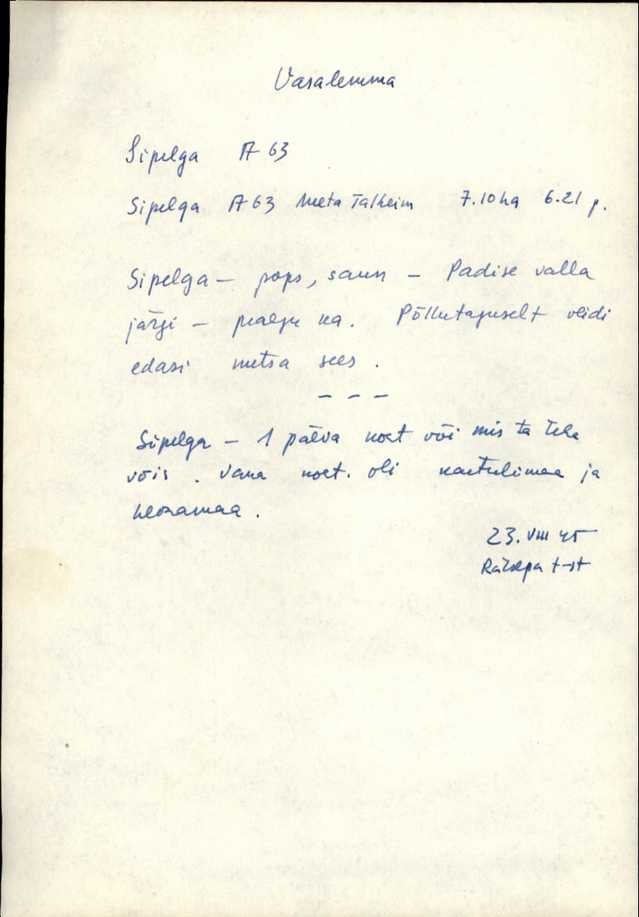 Vasalemma
Sipelga A 63
Sipelga A 63 Meta Talheim 7.10ha 6.21 r.
Sipelga – pops, saun – Padise valla
järgi – praegu ka. Põllutaguselt veidi
edasi metsa sees.
– – –
Sipelga – 1 päeva koht või mis ta teha
võis. Vana koht. oli kartulimaa ja
loomamaa.
23. VIII 45
t-st